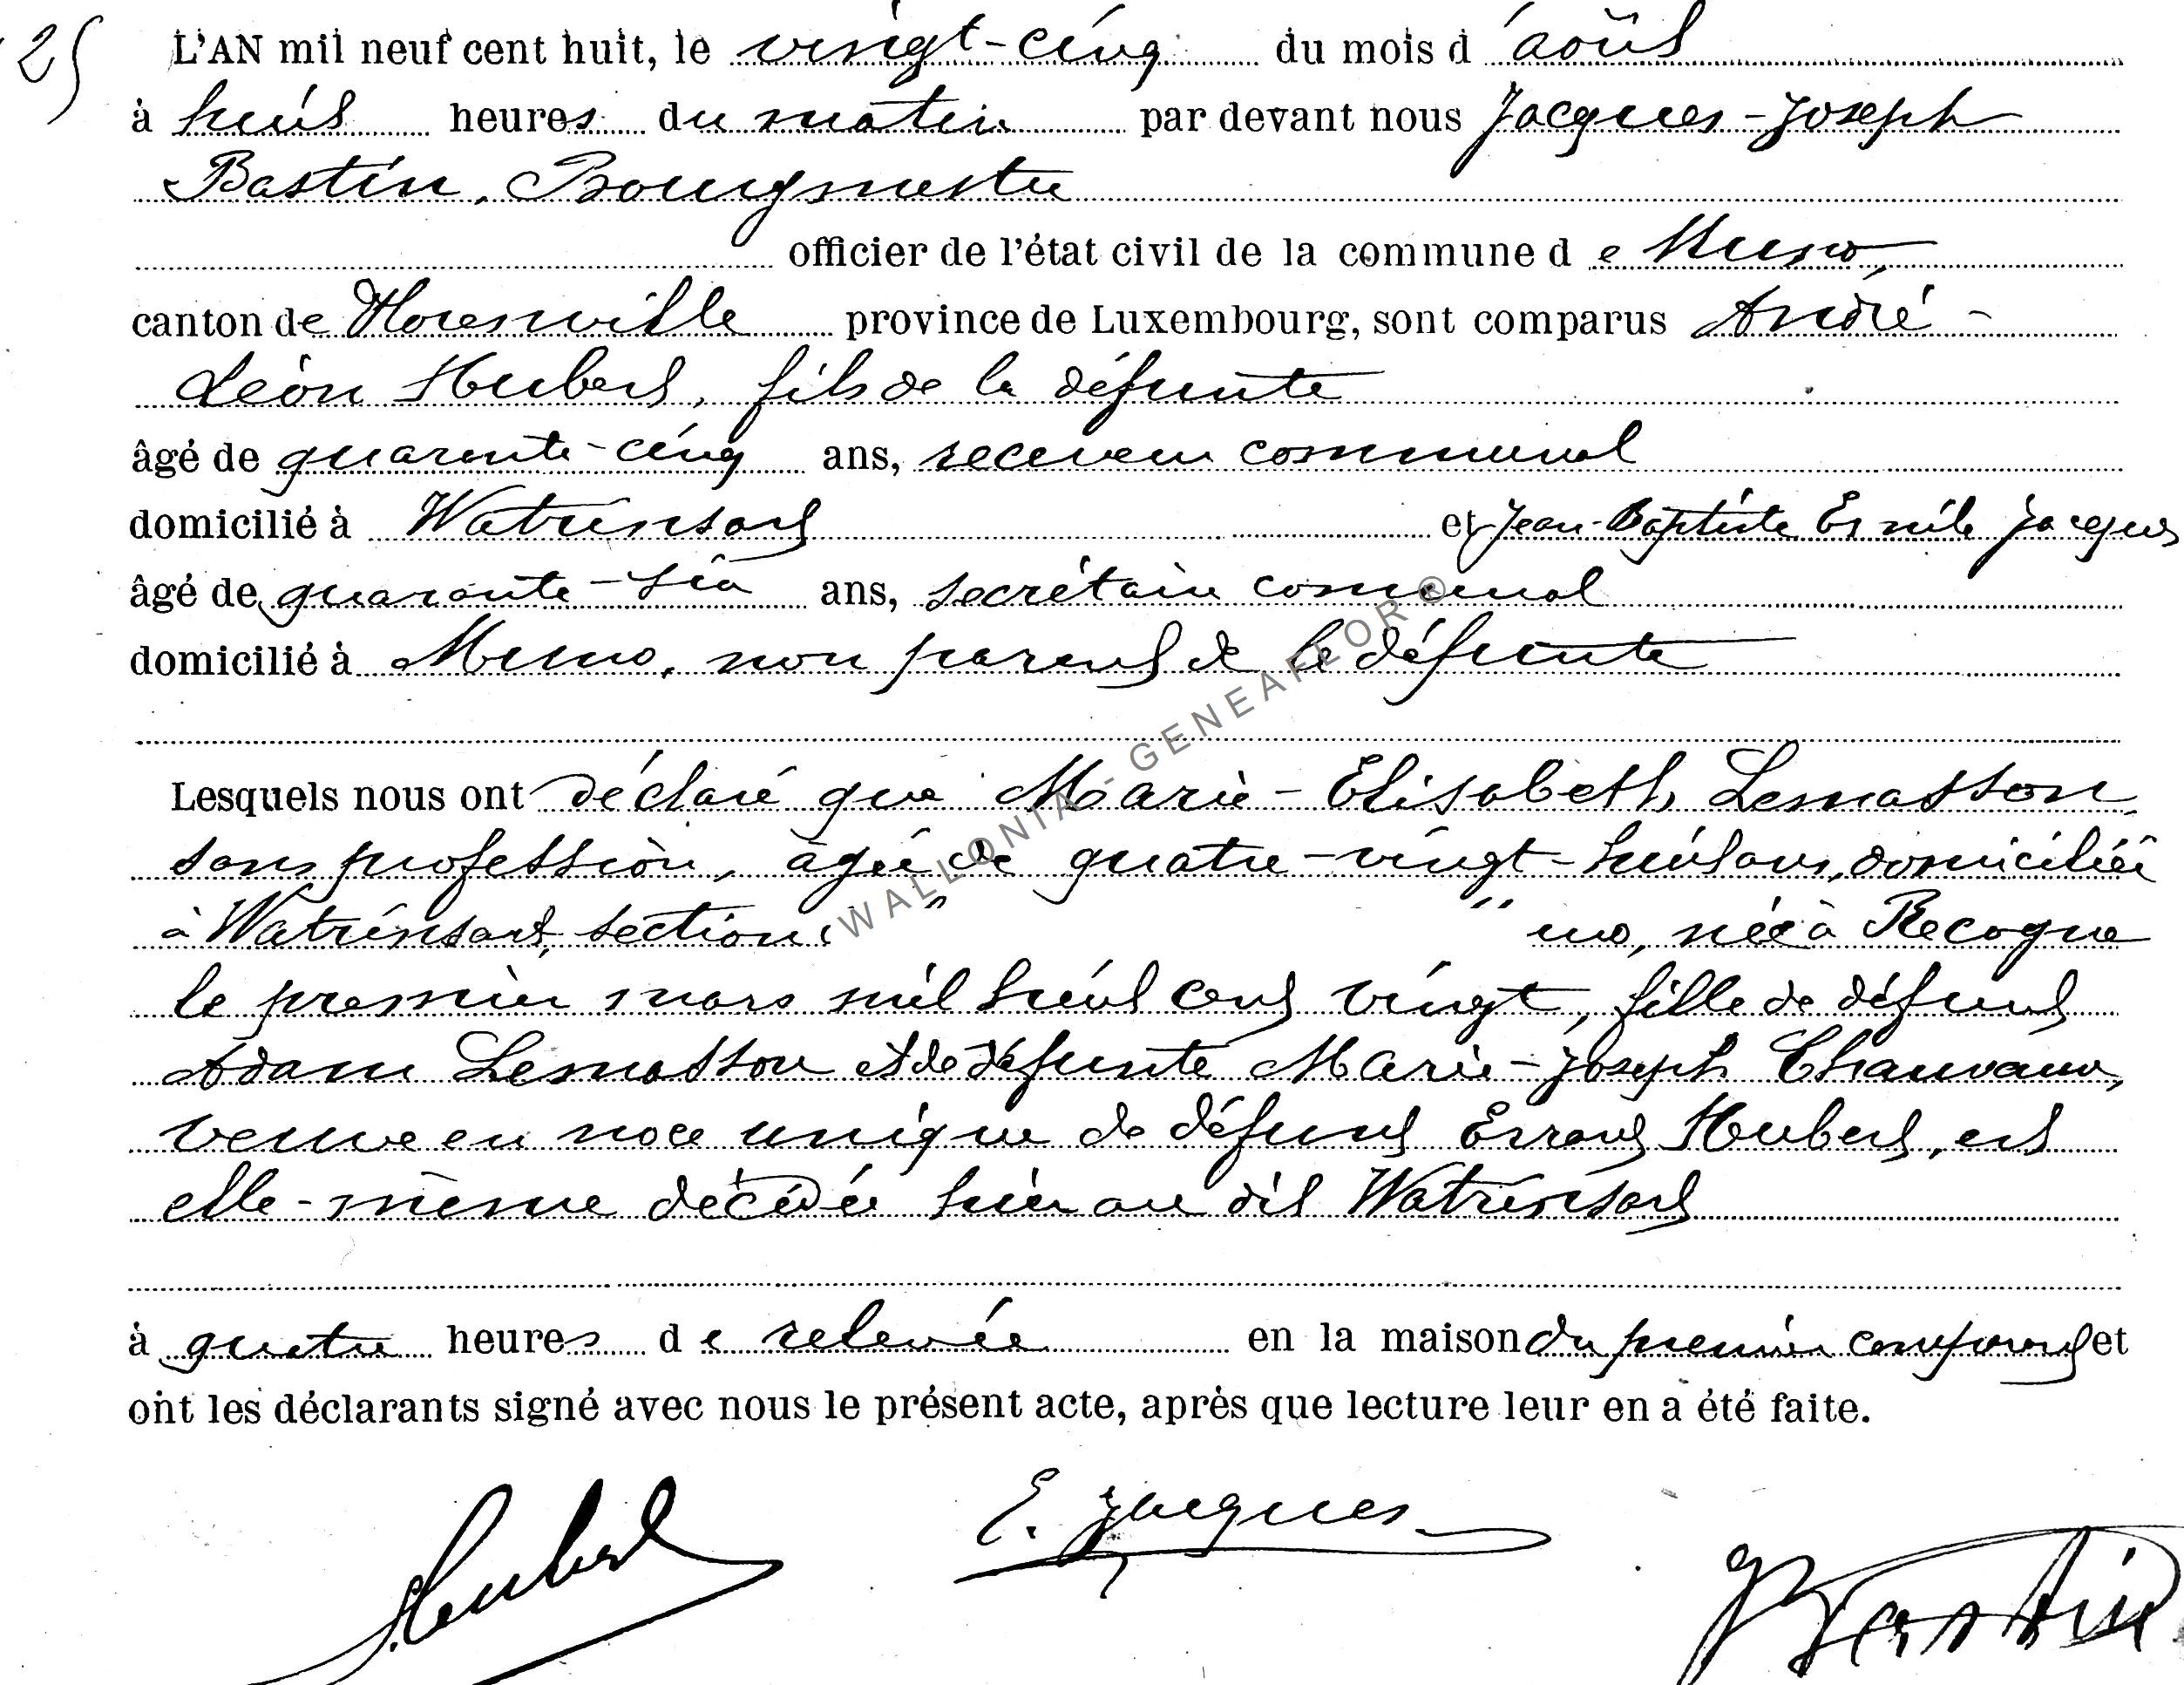 25
L'AN mil neuf cent huit, le vingt-cinq du mois d'août
à huit heures du matin par devant nous Jacques-Joseph
Bastin, Bourgmestre
officier de l'état civil de la commune de Muno,
canton de Florenville province de Luxembourg, sont comparus André-
Léon Hubert, fils de la défunte
âgé de quarante-cinq ans, receveur communal
domicilié à Watrinsart et Jean-Baptiste Emile Jacques
âgé de quarante-six ans, secrétaire communal
domicilié à Muno, non parent de la défunte
Lesquels nous ont déclaré que Marie-Elisabeth Lemasson
sans profession, âgée de quatre-vingt-huit ans, domiciliée
à Watrinsart, section no, née à Recogne
le premier mars mil huit cent vingt, fille de défunt
Adam Lemasson et de défunte Marie-Joseph Chauvaux,
veuve en noce unique de défunt Hubert, est
elle-même décédée hier au dit Watrinsart
à quatre heures de relevée en la maison du premier comparant et
ont les déclarants signé avec nous le présent acte, après que lecture leur en a été faite.
Hubert E. Jacques JBastin
WALLONIA - GENEAFLOR ®